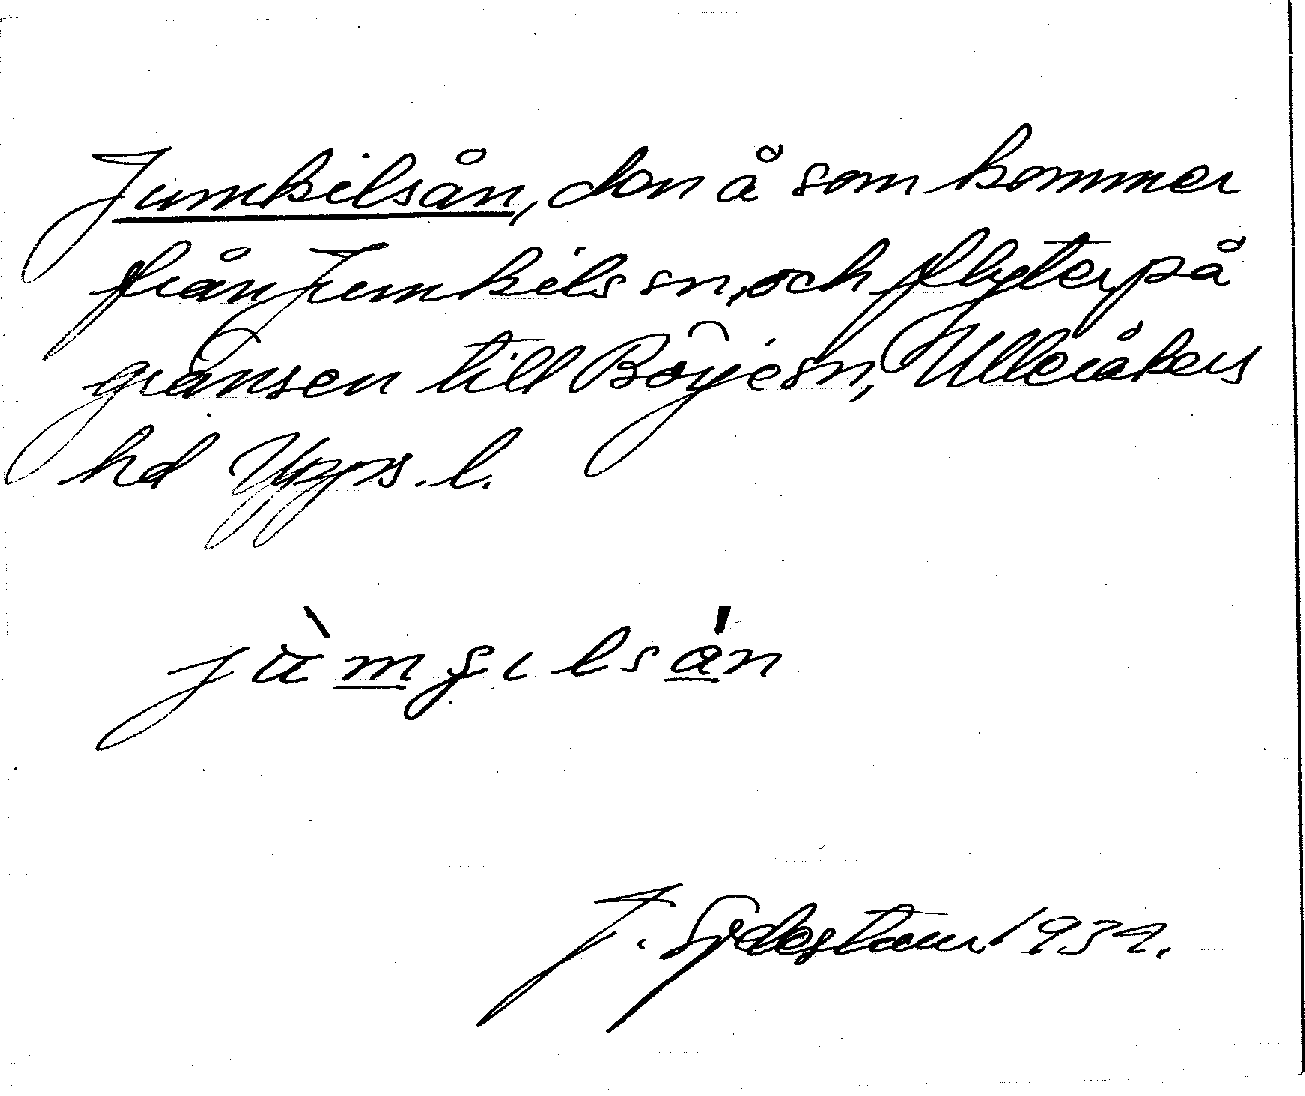 Jumkilsån, den å som kommer
från Jumkils sn, och flyter på
gränsen till Börje sn, Ulleråkers
hd Upps. l.
J. 1934.